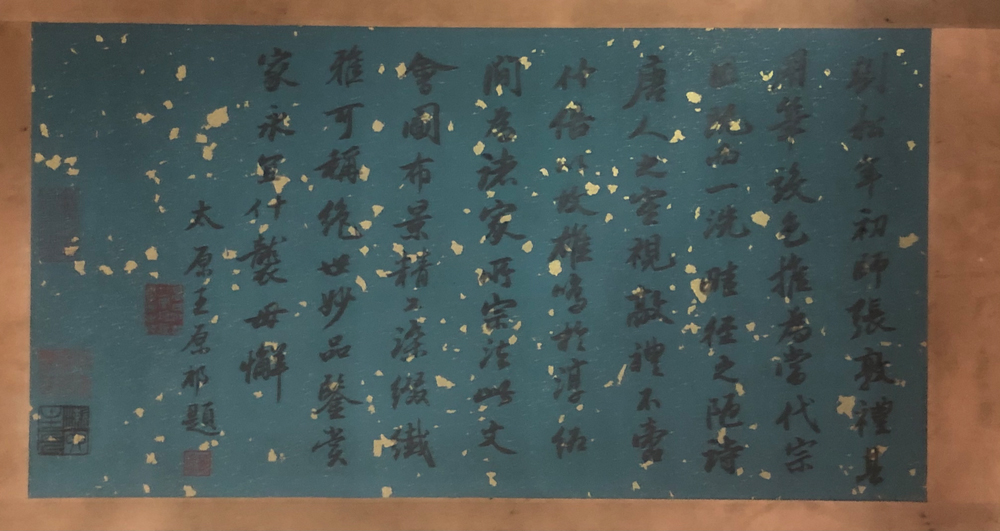 劉松年初師張敦禮其
用筆設色推為當代宗
一洗畦徑之陋詣
唐人之室視敦禮不啻
什倍以故雄鳴於淳紹
間為諸家所宗法此文
會圖布景精工綴纖
雅可稱絕世妙品鑒賞
家永宜什襲毋懈
太原王原祁題